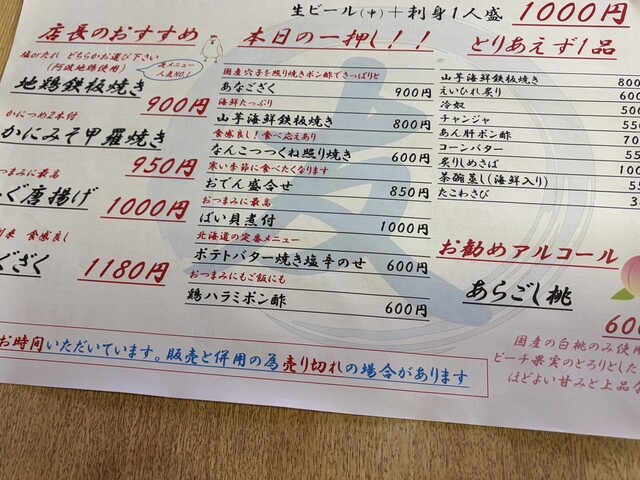 生ビール(中)＋刺身1人盛 1000円
店長のおすすめ
塩orたれ どちらかお選び下さい
(阿波地鶏使用)
裏メニュー
人気NO.1
地鶏鉄板焼き
900円
かにつめ2本付
かにみそ甲羅焼き
950円
つまみに最高
ぐ唐揚げ
1000円
食感良し
ござく
1180円
本日の一押し!!
国産穴子を照り焼きポン酢でさっぱりと
あなござく 900円
海鮮たっぷり
山芋海鮮鉄板焼き 800円
食感良し!食べ応えあり
なんこつつくね照り焼き 600円
寒い季節に食べたくなります
おでん盛合せ 850円
おつまみに最高
ばい貝煮付 1000円
北海道の定番メニュー
ポテトバター焼き塩辛のせ 600円
おつまみにもご飯にも
鶏ハラミポン酢 600円
とりあえず1品
山芋海鮮鉄板焼き 800
えいひれ炙り 600
冷奴
チャンジャ 550
あん肝ポン酢
コーンバター
炙りしめさば
茶碗蒸し(海鮮入り)
たこわさび
お勧めアルコール
あらごし桃
600
国産の白桃のみ使用
ピーチ果実のとろりとした
ほどよい甘みと上品
お時間いただいています。販売と併用の為売り切れの場合があります